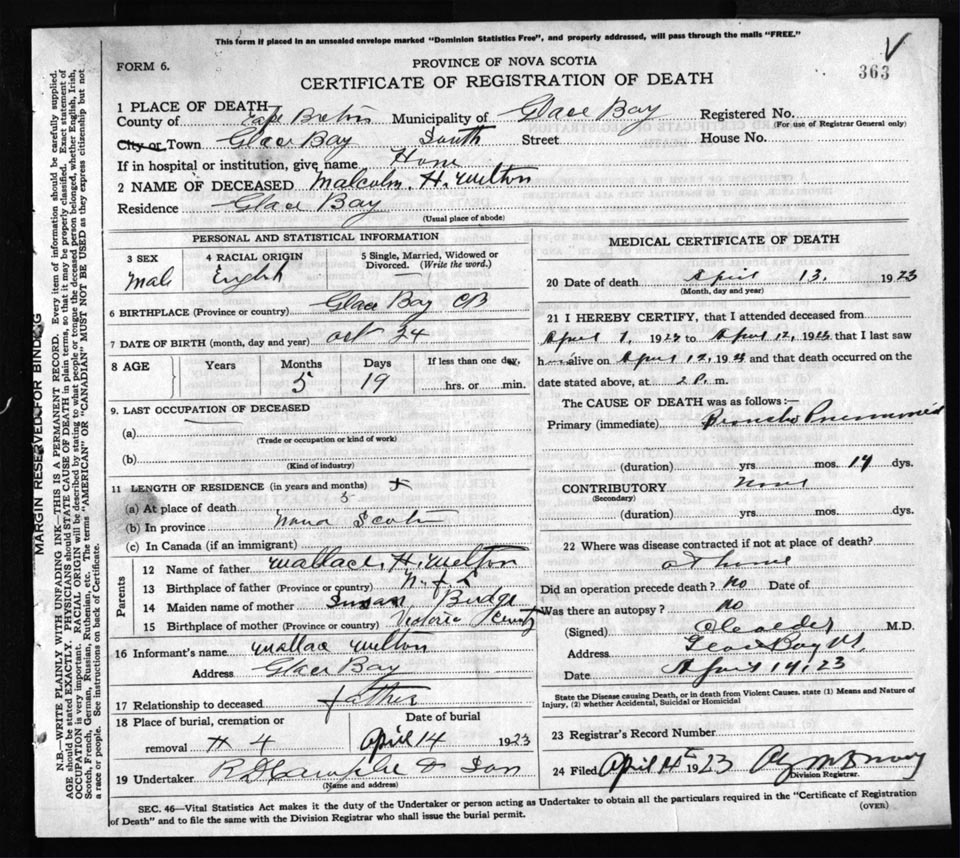 This form if placed in an unsealed envelope marked "Dominion Statistics Free", and properly addressed, will pass through the mails "FREE."
FORM 6.
PROVINCE OF NOVA SCOTIA
363
CERTIFICATE OF REGISTRATION OF DEATH
1 PLACE OF DEATH
County of Cape Breton Municipality of Glace Bay Registered No.
(For use of Registrar General only)
City or Town Glace Bay South Street House No.
If in hospital or institution, give name Home
2 NAME OF DECEASED Malcolm. H. Melton
Residence Glace Bay
(Usual place of abode)
PERSONAL AND STATISTICAL INFORMATION
3 SEX 4 RACIAL ORIGIN 5 Single, Married, Widowed or Divorced. (Write the word.)
Male English
6 BIRTHPLACE (Province or country) Glace Bay CB
7 DATE OF BIRTH (month, day and year) Oct 24
8 AGE Years Months Days If less than one day,
5 19 hrs. or min.
9. LAST OCCUPATION OF DECEASED
(a)
(Trade or occupation or kind of work)
(b)
(Kind of industry)
11 LENGTH OF RESIDENCE (in years and months)
(a) At place of death 5
(b) In province Nova Scotia
(c) In Canada (if an immigrant)
Parents
12 Name of father Wallace. H. Melton
13 Birthplace of father (Province or country)
14 Maiden name of mother Susan Budge
15 Birthplace of mother (Province or country) Victoria County
16 Informant's name Wallace Melton
Address Glace Bay
17 Relationship to deceased Father
18 Place of burial, cremation or removal Date of burial
April 14 1923
19 Undertaker & Son
(Name and address)
MEDICAL CERTIFICATE OF DEATH
20 Date of death April 13. 1923
(Month, day and year)
21 I HEREBY CERTIFY, that I attended deceased from
April 1, 1923 to April 12, 1923 that I last saw
h alive on April 12, 1923 and that death occurred on the
date stated above, at 2 P. m.
The CAUSE OF DEATH was as follows:—
Primary (immediate) Broncho Pneumonia
(duration) yrs. mos. 14 dys.
CONTRIBUTORY None
(Secondary)
(duration) yrs. mos. dys.
22 Where was disease contracted if not at place of death?
at home
Did an operation precede death? no Date of
Was there an autopsy? no
(Signed) M.D.
Address Glace Bay
Date April 14, 23
State the Disease causing Death, or in death from Violent Causes, state (1) Means and Nature of Injury, (2) whether Accidental, Suicidal or Homicidal
23 Registrar's Record Number
24 Filed April 14th 1923
Division Registrar.
SEC. 46—Vital Statistics Act makes it the duty of the Undertaker or person acting as Undertaker to obtain all the particulars required in the "Certificate of Registration
of Death" and to file the same with the Division Registrar who shall issue the burial permit.
(OVER)
MARGIN RESERVED FOR BINDING
N.B.—WRITE PLAINLY WITH UNFADING INK—THIS IS A PERMANENT RECORD. Every item of information should be carefully supplied.
AGE should be stated EXACTLY. PHYSICIANS should STATE CAUSE OF DEATH in plain terms, so that it may be properly classified. Exact statement of
OCCUPATION is very important. RACIAL ORIGIN will be described by stating to what people or tongue the deceased person belonged, whether English, Irish,
Scotch, French, German, Russian, Ruthenian, etc. The terms "AMERICAN" OR "CANADIAN" MUST NOT BE USED as they express citizenship but not
a race or people. See instructions on back of Certificate.